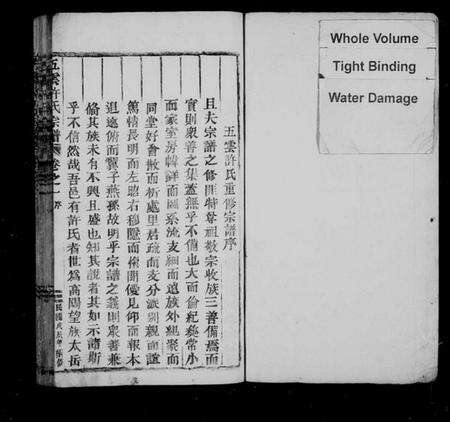 Whole Volume
Tight Binding
Water Damage
五雲許氏重修宗譜序
且夫宗譜之修匪特尊祖敬宗收族三善備焉而
實則衆善之集蓋無乎不備也大而倫紀綱常小
而家室房韓鮮而國系流支細而遠族外紀聚而
同堂好會散而析處里居疏而支分派別親而誼
篤情長明而左昭右穆隱而優見仰而報本
追遠俯而贊子燕孫故明乎宗譜之義則衆善兼
備其族未有不興且盛也知其說者其如示諸斯
乎不信然哉吾邑有許氏者世爲高陽望族太岳
五雲許氏宗譜 卷之一 序
民國戊辰年